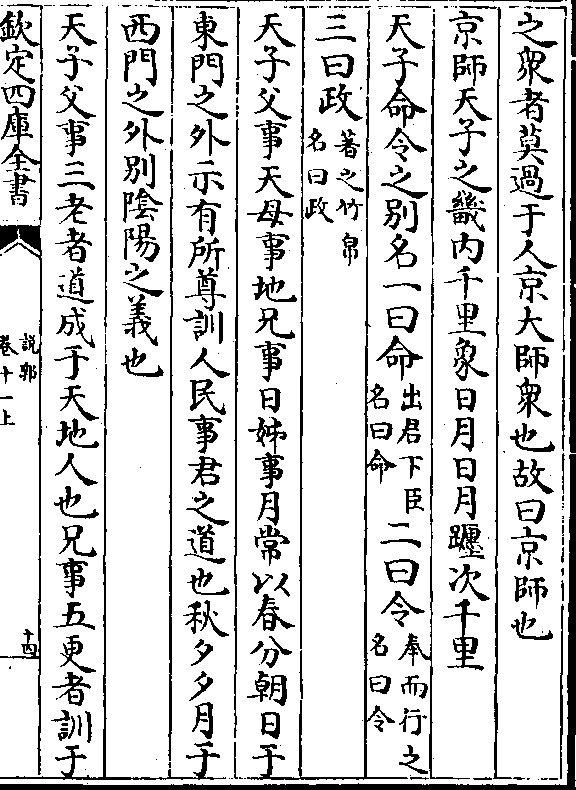 之衆者莫過于人京大師衆也故曰京師也
京師天子之畿内千里象日月日月躔次千里
天子命令之别名一曰命出君下臣名曰命二曰令奉而行之名曰令
三曰政著之竹帛名曰政
天子父事天母事地兄事日姊事月常以春分朝日于
東門之外示有所尊訓人民事君之道也秋夕夕月于
西門之外别隂陽之義也
天子父事三老者道成于天地人也兄事五更者訓于
欽定四庫全書
説郛
卷十一上
十四